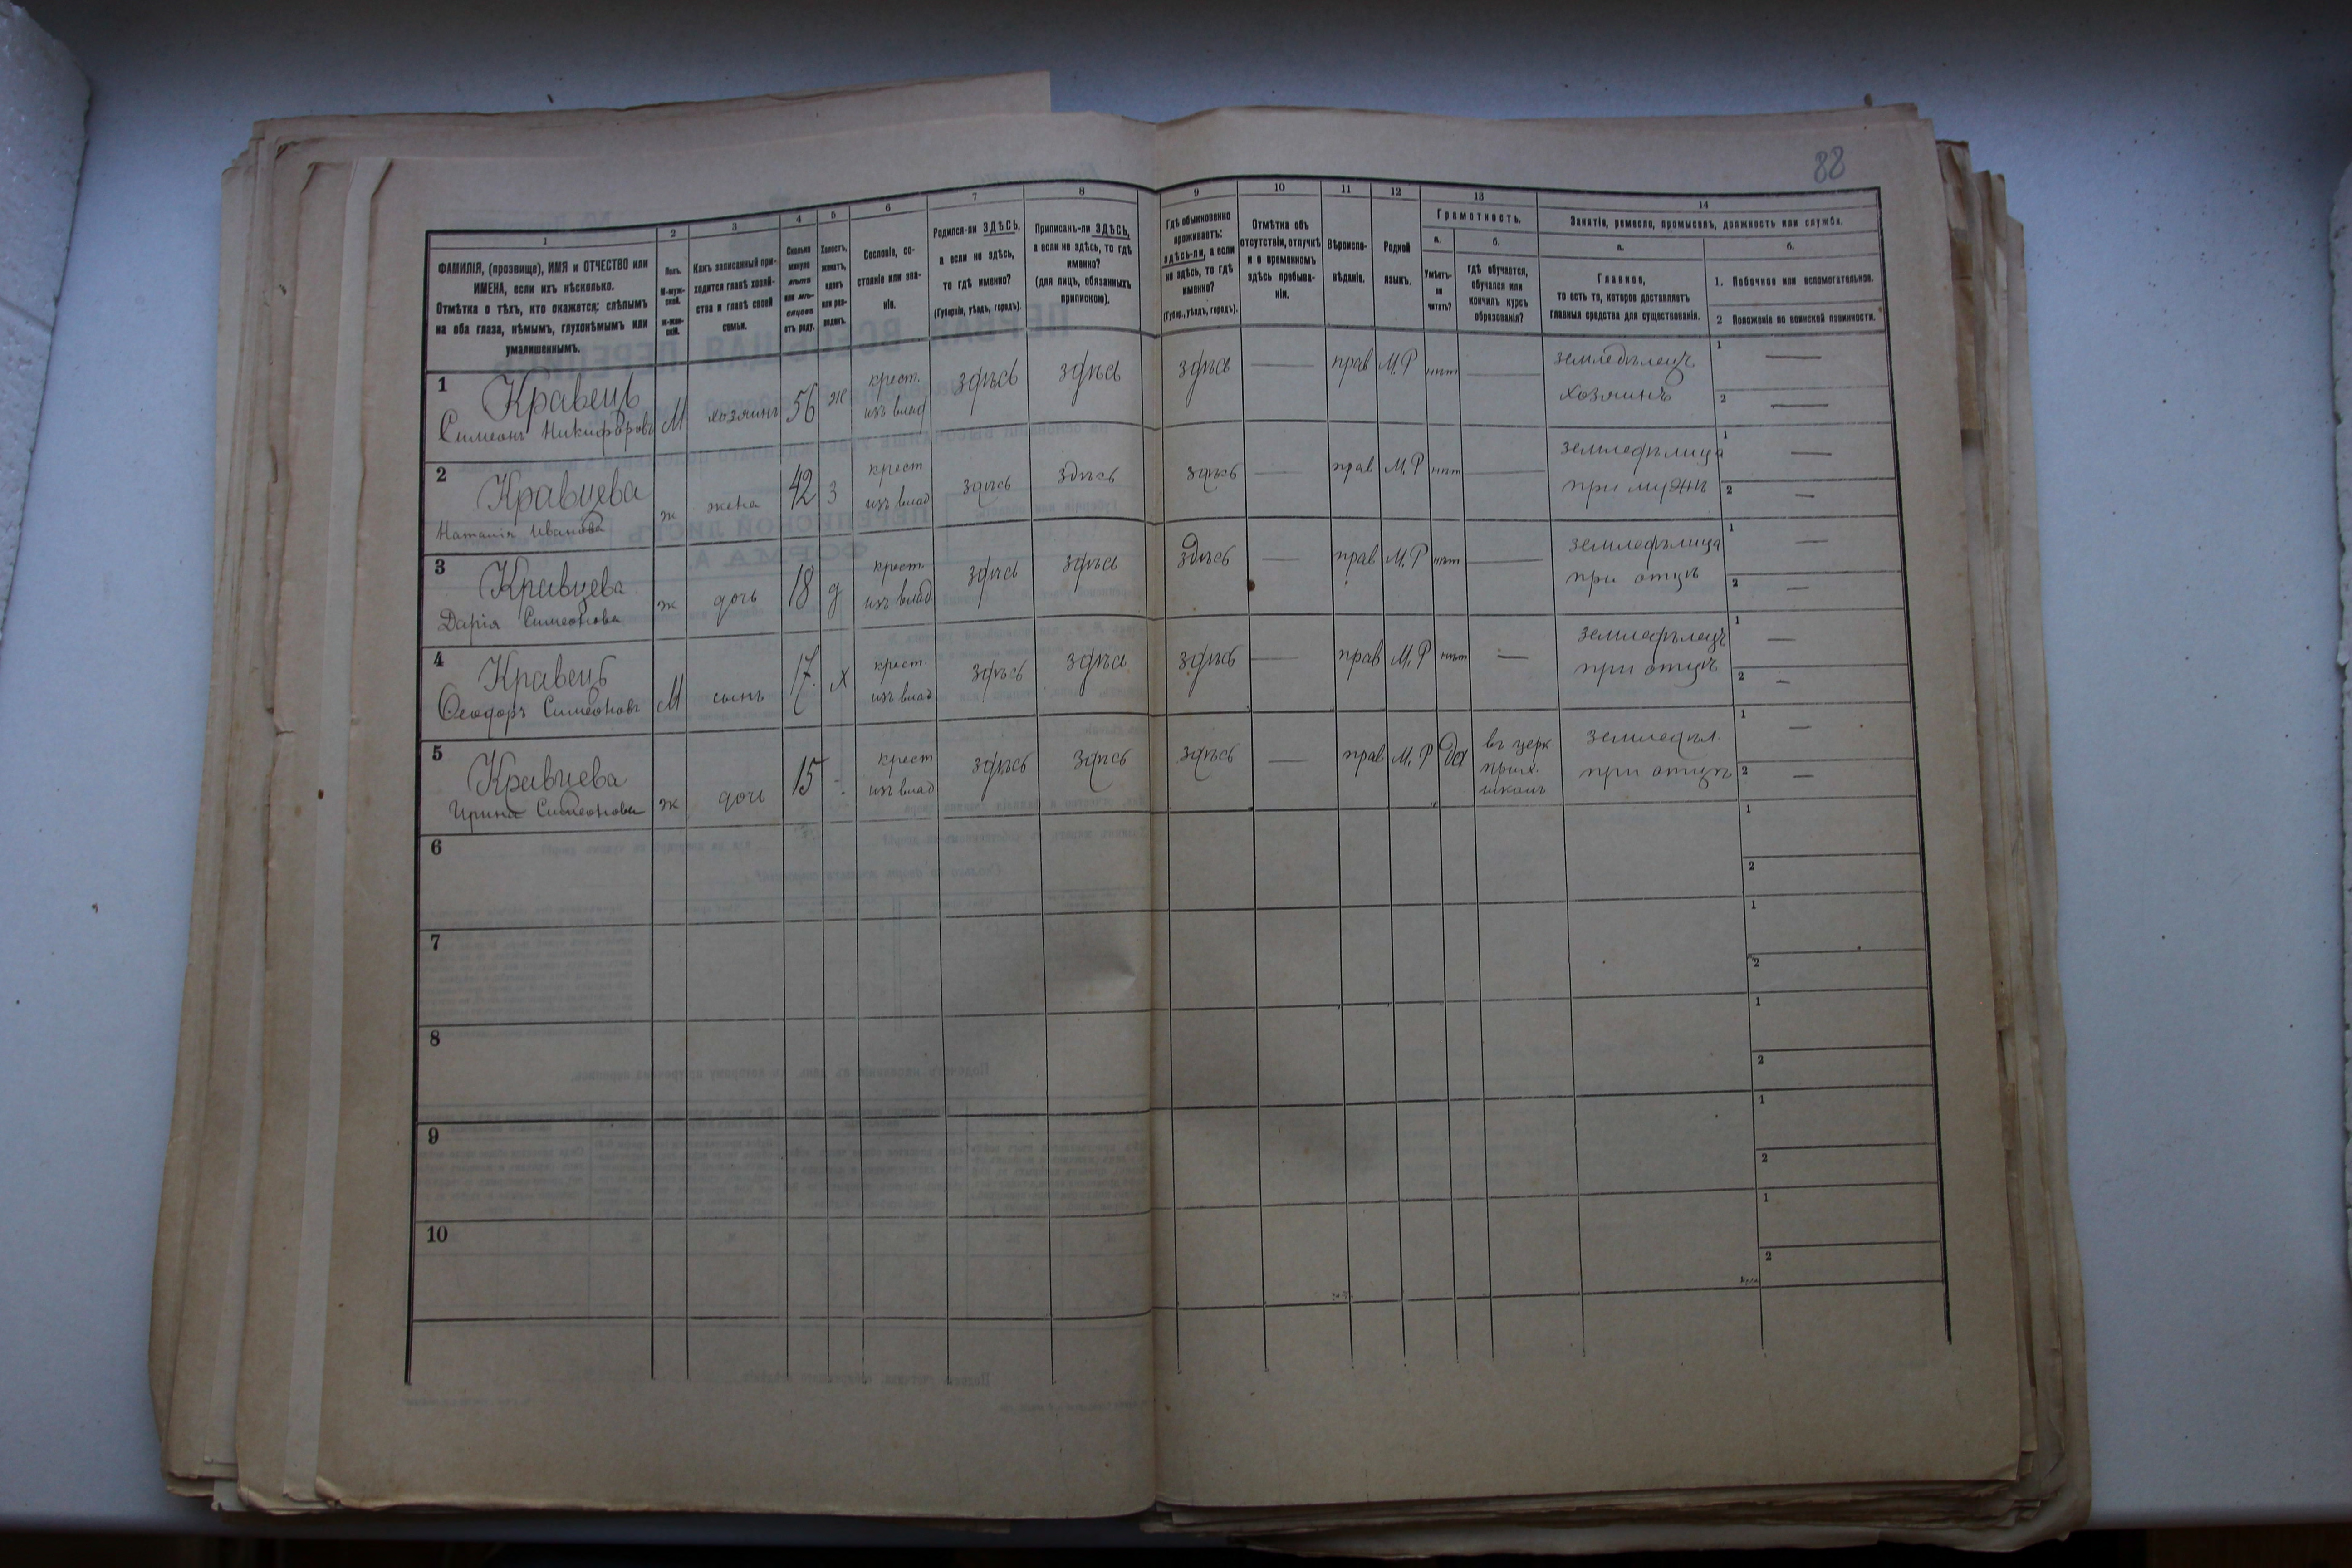 88
1 2 3 4 5 6 7 8 9 10 11 12 13 14
ФАМИЛІЯ, (прозвище), ИМЯ и ОТЧЕСТВО или
ИМЕНА, если ихъ нѣсколько.
Отмѣтка о тѣхъ, кто окажется: слѣпымъ
на оба глаза, нѣмымъ, глухонѣмымъ или
умалишеннымъ.
Полъ.
М-муж-
ской.
Ж-жен-
скій.
Какъ записанный при-
ходится главѣ хозяй-
ства и главѣ своей
семьи.
Сколько
минуло
лѣтъ
или мѣ-
сяцевъ
отъ роду.
Холостъ,
женатъ,
вдовъ
или раз-
веденъ.
Сословіе, со-
стояніе или зва-
ніе.
Родился-ли ЗДѢСЬ,
а если не здѣсь,
то гдѣ именно?
(Губернія, уѣздъ, городъ).
Приписанъ-ли ЗДѢСЬ,
а если не здѣсь, то гдѣ
именно?
(для лицъ, обязанныхъ
припискою).
Гдѣ обыкновенно
проживаетъ:
здѣсь-ли, а если
не здѣсь, то гдѣ
именно?
(Губер., уѣздъ, городъ).
Отмѣтка объ
отсутствіи, отлучкѣ
и о временномъ
здѣсь пребыва-
ніи.
Вѣроиспо-
вѣданіе.
Родной
языкъ.
Грамотность.
а.
Умѣетъ-
ли
читать?
б.
гдѣ обучается,
обучался или
кончилъ курсъ
образованія?
Занятіе, ремесло, промыселъ, должность или служба.
а.
Главное,
то есть то, которое доставляетъ
главныя средства для существованія.
б.
1. Побочное или вспомогательное.
2 Положеніе по воинской повинности.
1 Кравець
Симеонъ Никифоровъ М хозяинъ 56 ж крест. изъ влад здѣсь здѣсь здѣсь — прав М.Р нѣтъ — земледѣлецъ хозяинъ 1 — 2 —
2 Кравцева
Наталія Иванова ж жена 42 з крест изъ влад здѣсь здѣсь здѣсь — прав М.Р нѣтъ — земледѣлица при мужѣ 1 — 2 —
3 Кравцева
Дарія Симеонова ж дочь 18 д крест. изъ влад здѣсь здѣсь здѣсь — прав М.Р нѣтъ — земледѣлица при отцѣ 1 — 2 —
4 Кравець
Ѳеодоръ Симеоновъ М сынъ 17. х крест. изъ влад здѣсь здѣсь здѣсь — прав М.Р нѣтъ — земледѣлецъ при отцѣ 1 — 2 —
5 Кравцева
Ирина Симеонова ж дочь 15 - крест изъ влад здѣсь здѣсь здѣсь — прав М.Р да въ церк. прих. школѣ земледѣл. при отцѣ 1 — 2 —
6 1 2
7 1 2
8 1 2
9 1 2
10 1 2